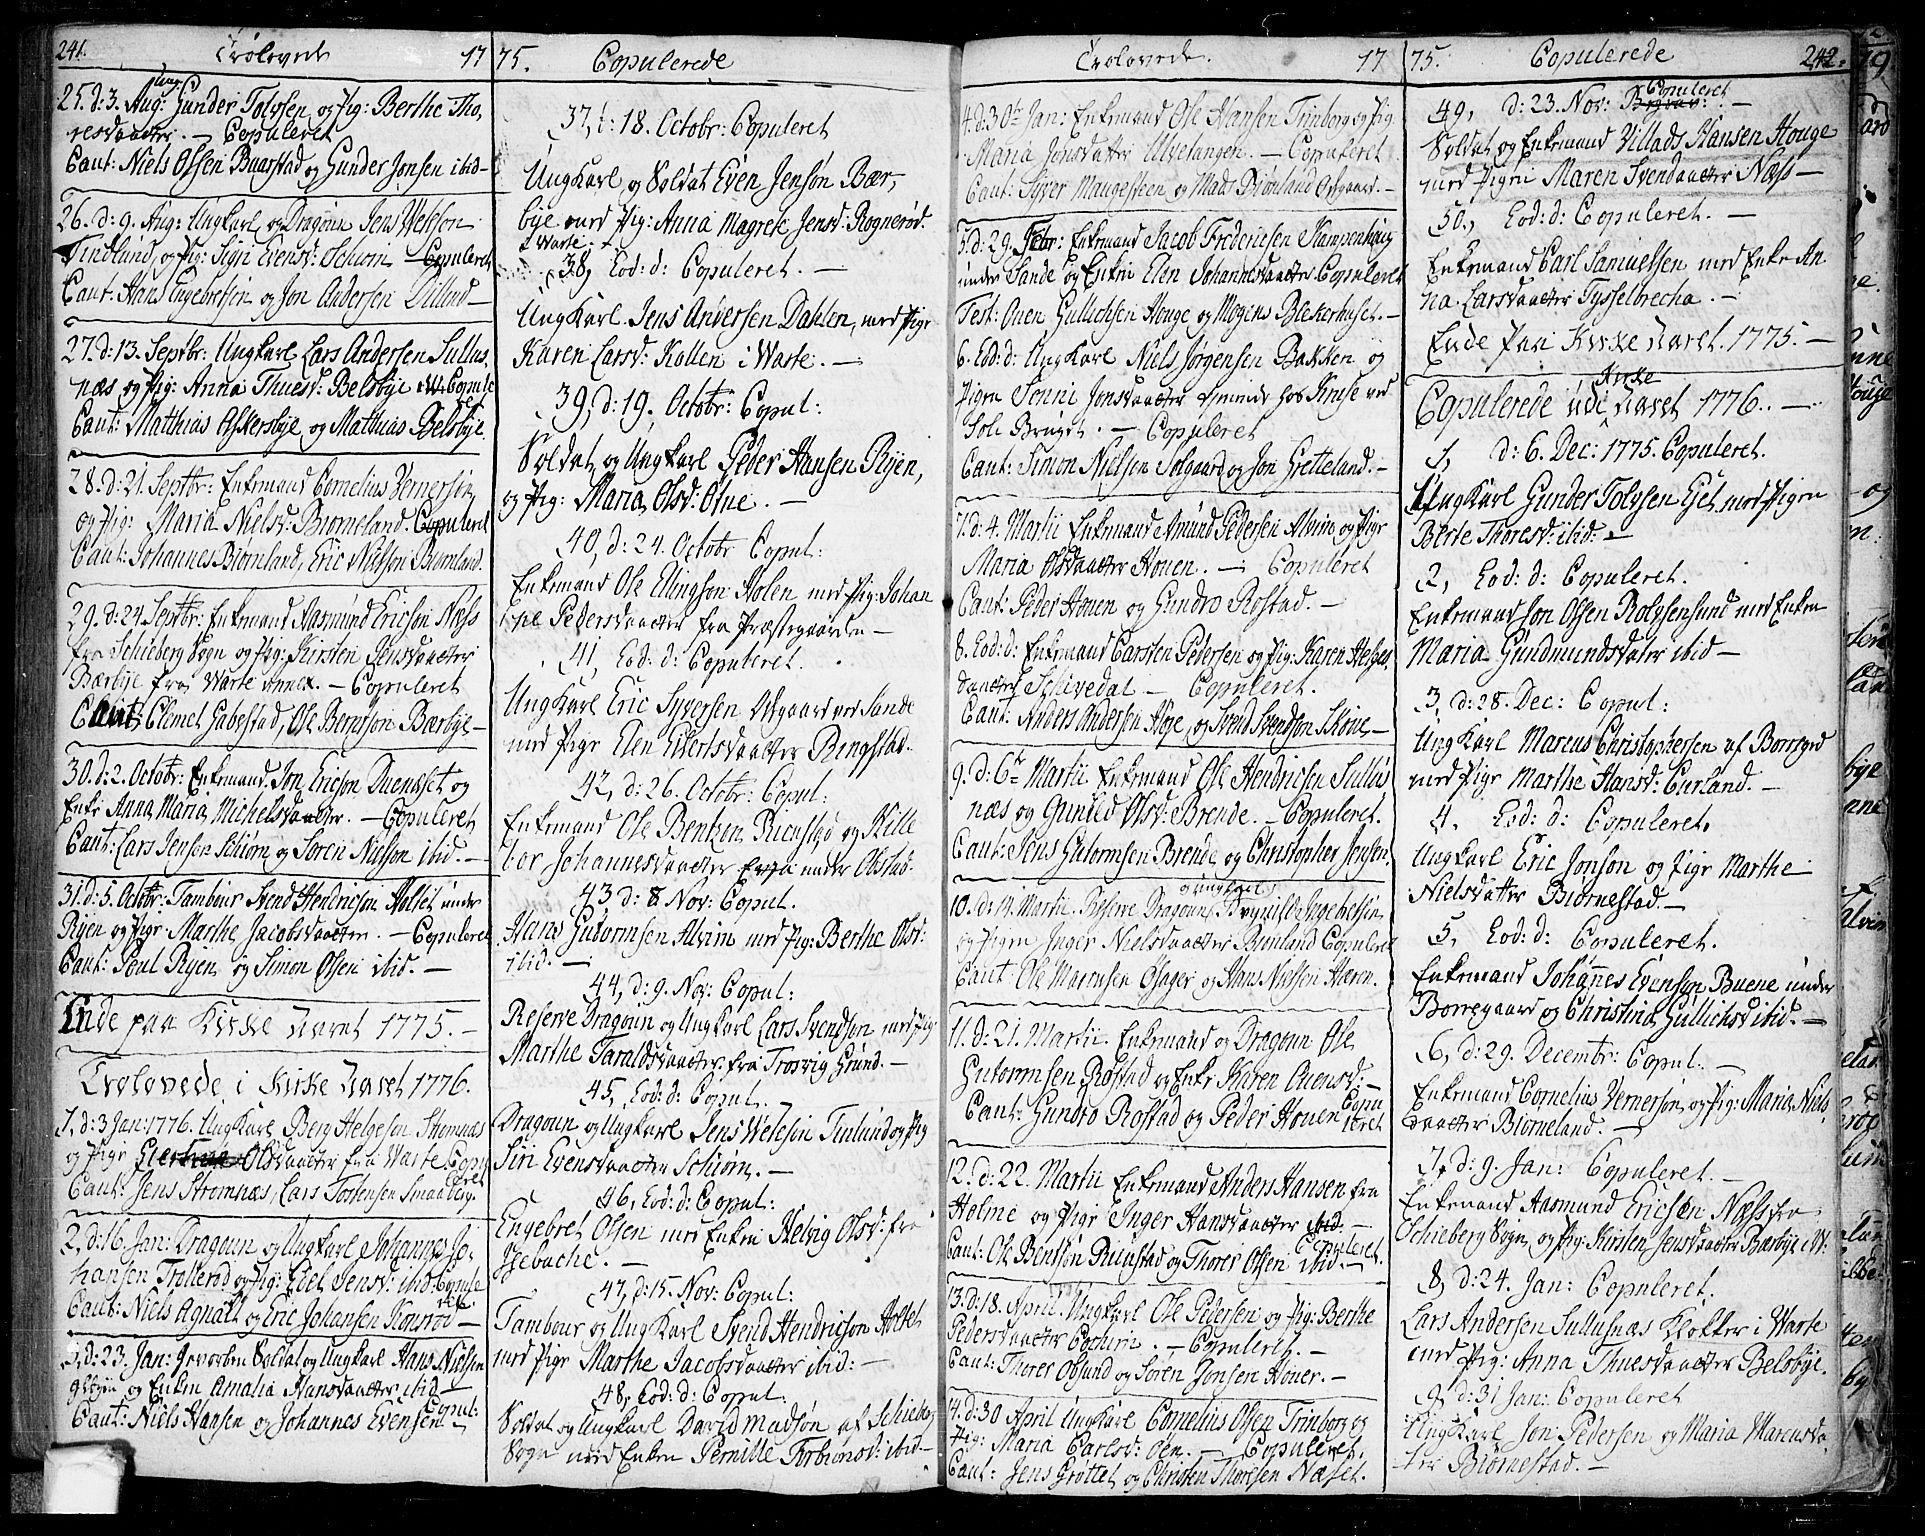 241. Trolovede 17
25. d: 3. Aug: Ung Gunder Tolvsen og Pig: Berthe Tho,
resdaatter. — Copuleret
Caut: Niels Olsen Baarstad og Gunder Jonsen ibid —
26. d: 9. Aug: Ungkarl og Dragoun Jens Welesen
Tindlund og Pig: Sigri Evensd: Schiørn — Copuleret
Caut: Hans Engebretsen og Jon Andersen Dillud —
27. d: 13. Septbr: Ungkarl Lars Andersen Sullus,
næs og Pig: Anna Thuesd: Belsbye Copule
ret
Caut: Matthias Askersbye og Matthias Belsbye.
28. d: 21. Septbr: Enkemand Cornelius Vernersøn,
og Pig: Maria Nielsd: Biørneland. Copuleret
Caut: Johannes Biørnland, Eric Nielsøn Biørnland.
29. d: 24. Septbr: Enkemand Aasmund Ericsøn Næss
fra Schieberg Sogn og Pig: Kirsten Jensdaatter
Bærbye fra Warte annex. — Copuleret
Caut: Clemet Gabestad, Ole Berntsøn Bærbye —
30. d: 2. Octobr: Enkemand Jon Ericson Duenæset og
Enke Anna Maria Michelsdaatter. — Copuleret
Caut: Lars Jensøn Schiørn og Søren Nielsøn ibid. —
31. d: 5. Octobr: Tambour Svend Hendricsøn Holtet under
Ryen og Pige Marthe Jacobsdaatter. — Copuleret
Caut: Poul Ryen og Simon Olsen ibid. —
Ende paa Kirke Aaret 1775. —
Trolovede i Kirke Aaret 1776.
1, d: 3 Jan: 1776. Ungkarl Berg Helgesøn Strømnæs
og Pige Olsdaatter fra Warte Copu
leret
Caut: Jens Strømnæs, Lars Tostensen Smaaberg.
2, d: 16. Jan: Dragoun og Ungkarl Johannes Jo,
hansen Trollerød og Pig: Edel Jensd: ibid: Copule
ret.
Caut: Niels Agnalt og Eric Johansen Komrød —
3, d: 23. Jan: Gevorben Soldat og Ungkarl Hans Nielsen
og Enken Amalia Hansdaatter ibid —
Copul:
Caut: Niels Hansen og Johannes Evensen —
75. Copulerede
37, d: 18. Octobr: Copuleret
Ungkarl og Soldat Even Jensøn Bær,
bye med Pig: Anna Magrete Jensd: Rognerød.
i Warte. —
38, Eod: d: Copuleret. —
Ungkarl Jens Andersen Dahlen, med Pige
Karen Larsd: Kollen i Warte. —
39, d: 19. Octobr: Copul:
Soldat og Ungkarl Peder Hansen Ryen,
og Pig: Maria Olsd: Othe. —
40, d: 24. Octobr Copul:
Enkemand Ole Ellingsøn Holen med Pig: Johan
ne Pedersdaatter fra Præstegaarden —
41, Eod: d: Copuleret.
Ungkarl Eric Syversen Ousgaard ved Sande
med Pige Elen Eilertsdaatter Ringstad.
42, d: 26. Octobr: Copul:
Enkemand Ole Bentzen Ruenstad og Kille
bor Johannesdaatter under Olstad.
43 d: 8 Nov: Copul.
Hans Gutormsen Alvim med Pig: Berthe Olsd:
ibid. —
44, d: 9. Nov: Copul:
Reserve Dragoun og Ungkarl Lars Svendsøn med Pig:
Marthe Taraldsdaatter fra Trosvig Grund. —
45, Eod: d: Copul. —
Dragoun og Ungkarl Jens Welesøn Tinlund og Pig
Siri Evensdaatter Schiørn. —
46, Eod: d: Copul:
Engebret Olsen med Enken Helvig Olsd: fra
Gjebache. —
47, d: 15. Nov: Copul:
Tambour og Ungkarl Svend Hendricsøn Holtet
med Pige Marthe Jacobsdaatter ibid: —
48, Eod: d: Copul.
Soldat og Ungkarl David Madsøn af Schieberg
Sogn med Enken Pernille Torbiørnsd: ibid —
Trolovede. 17
4. d: 30te Jan: Enkemand Ole Hansen Trinborg og Pig
Maria Jonsdatter Ulvetangen. — Copuleret
Caut: Siver Haugesteen og Mads Biørnlund Ousgaard. —
5. d: 29. Febr: Enkemand Jacob Fredericsen Stampenhaug
under Sande og Enken Elen Johannesdaatter Copuleret
Test: Ouen Gullichsen Houge og Mogens Blekerhuset. —
6. Eod: d: Ungkarl Niels Jørgensen Bakken og
Pigen Sønni Jonsdaatter tienende hos Kruse ved
Sole Bruget. — Copuleret
Caut: Simon Nielsen Solgaard og Jon Gretteland. —
7. d: 4. Martii Enkemand Amund Pedersen Alvim og Pige
Maria Olsdaatter Houen. — Copuleret
Caut: Peder Houen og Gundro Rostad. —
8. Eod: d: Enkemand Carsten Pedersen og Pig: Karen Helges
daatter Schivedal — Copuleret.
Caut: Anders Andersen Hoye, og Svend Svendsøn Skove —
9. d: 6te Martii Enkemand Ole Hendricsen Sullus
næs og Gunild Olsd: Brende. — Copuleret.
Caut: Jens Gutormsen Brende og Christopher Jensen.
10. d: 14 Martii. Reserve Dragoun og Ungkarl Brynild Ingebretsen
og Pigen Inger Nielsdaatter Biønland Copuleret
Caut Ole Marensen Opager og Hans Nielsen Heren.
11. d: 21. Martii. Enkemand og Dragoun Ole
Gutormsen Rostad og Enke Karen Ouensd: —
Caut: Gundro Rostad og Peder Houen Copu
leret
12. d: 22. Martii Enkemand Anders Hansen fra
Holme og Pige Inger Hansdaatter ibid. —
Copuleret.
Caut: Ole Bentsøn Ruenstad og Thorer Olsen ibid. —
13. d: 18. April Ungkarl Ole Pedersen og Pig: Berthe
Pedersdaatter Cochim. — Copuleret. —
Caut: Thorer Opsund og Søren Jonsen Houer. —
14. d: 30 April Ungkarl Cornelius Olsen Trinborg og
Pig: Maria Carlsd: Øen. — Copuleret.
Caut: Jens Grøttet og Christen Thoresen Næset.
75. Copulerede 242.
49, d: 23. Nov: Copuleret —
Soldat og Enkemand Villads Hansen Houge
med Pigen Maren Svendaatter Næss —
50, Eod: d: Copuleret. —
Enkemand Carl Samuelsen med Enke An
na Larsdaatter Tysselbrecha. —
Ende paa Kirke Aaret 1775. —
Copulerede udi Kirke Aaret 1776. —
1, d: 6. Dec: 1775. Copuleret.
Ungkarl Gunder Tolvsen Gjel med Pigen
Berte Thoresd: ibid: —
2, Eod: d: Copuleret.
Enkemand Jon Olsen Rolvsensund med Enken
Maria Gundmundsdater ibid —
3, d: 28. Dec: Copul:
Ungkarl Marcus Christophersen af Borregrd
med Pige Marthe Hansd: Curland. —
4. Eod: d: Copuleret.
Ungkarl Eric Jonsøn og Pige Marthe
Nielsdatter Biørnestad. —
5, Eod: d: Copuleret.
Enkemand Johannes Evensøn Buene under
Borregaard og Christina Gullichsd ibid. —
6, d: 29. Decembr: Copul. —
Enkemand Cornelius Vernersøn, og Pig: Maria Niels
daatter Biørneland. —
7, d: 9. Jan: Copuleret. —
Enkemand Aasmund Ericsen Næss fra
Schieberg Sogn, og Pig: Kirsten Jensdaatter Bærbye i W:
8, d: 24. Jan: Copuleret.
Lars Andersen Sullusnæs Klokker i Warte
med Pig: Anna Thuesdaatter Belsbye.
9, d: 31 Jan: Copuleret
Ungkarl Jon Pedersen og Maria Marcusda
ter Biørnestad. —